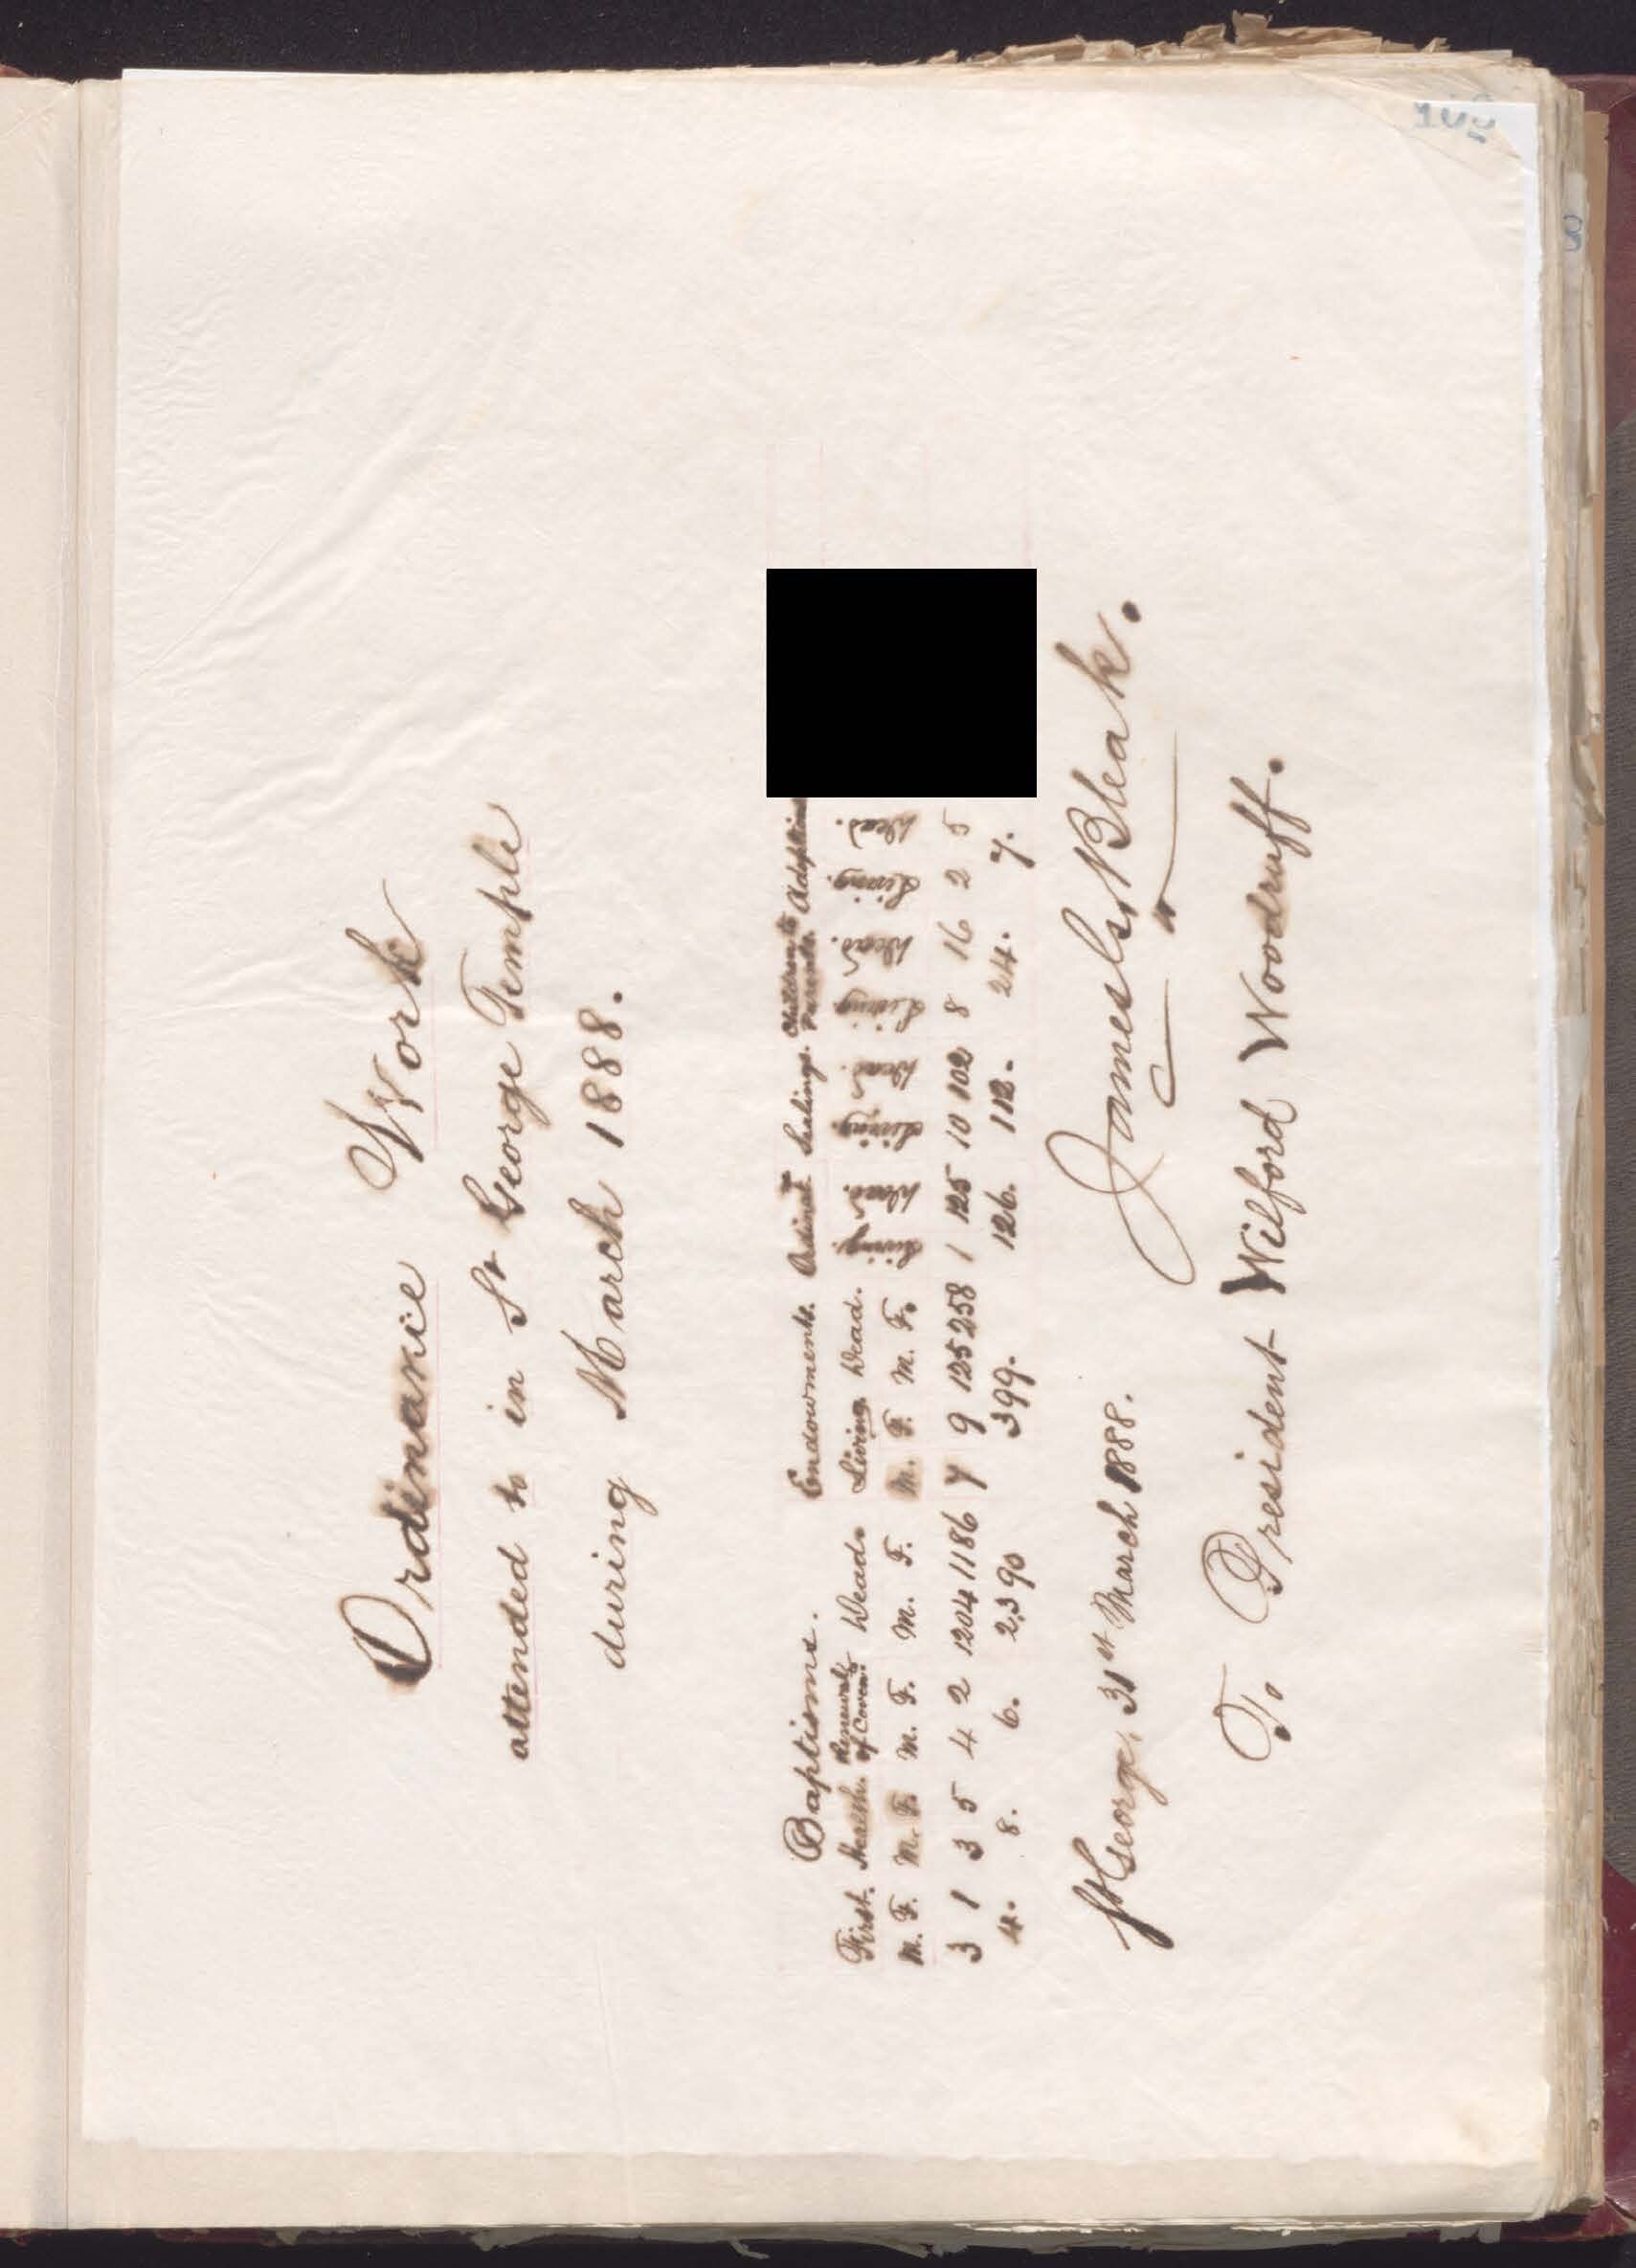 Ordinance Work
attended to in St George Temple
during March 1888.
Baptisms. Endowments. Ordinat.ⁿˢ Sealings. Children to Parents. Adoptions
First. Health. Renewals of Coven.ᵗˢ Dead. Living. Dead. Living. Dead. Living. Dead. Living. Dead. Living. Dead.
M. F. M. F. M. F. M. F. M. F. M. F. Living. Dead. Living. Dead. Living. Dead. Living Dead
3 1 3 5 4 2 1204 1186 7 9 125 258 1 125 10 102 8 16 2 5
4. 8. 6. 2,390 399. 126. 112. 24. 7.
St George, 31st March 1888. James G. Bleak.
To President Wilford Woodruff.